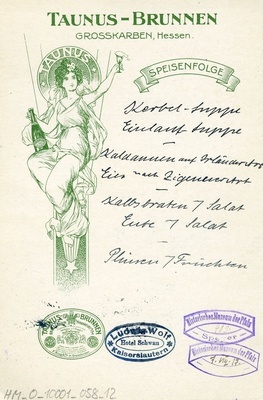 TAUNUS-BRUNNEN
GROSSKARBEN, Hessen.
TAUNUS
SPEISENFOLGE
Kerbel-suppe
Einlauf suppe
Kaldaunen auf
Eier auf Zigeunerart
Kalbsbraten / Salat
Ente / Salat
Plinsen / Früchten
Ludwig Wolf
Hotel Schwan
Kaiserslautern
Historisches Museum der Pfalz
Speyer
Historisches Museum der Pfalz
HM_0_10001_058_12